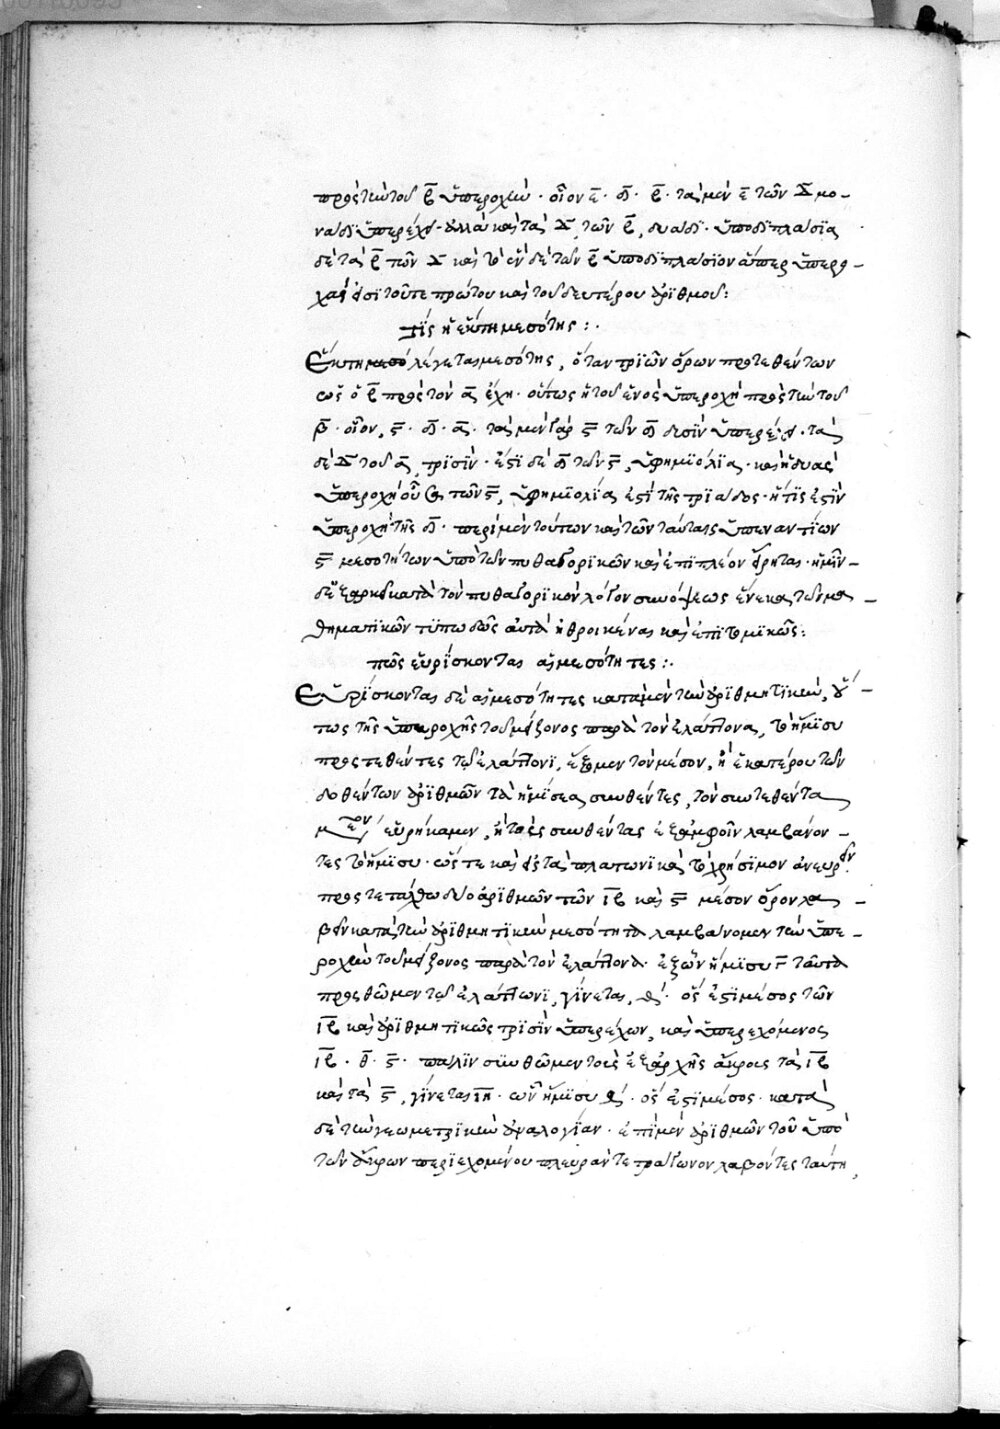 πρὸς τὴν τοῦ β̅ ὑπεροχήν · οἷον ε̅ · δ̅ · β̅ · τὰ μὲν ε̅ τῶν δ̅ μο-
νάδι ὑπερέχει · ἀλλὰ καὶ τὰ δ̅ τῶν β̅, δυάδι · ὑποδιπλάσια
δὲ τὰ β̅ τῶν δ̅ καὶ τὸ ἓν δὲ τῶν β̅ ὑποδιπλάσιον ἅπερ ὑπερο-
χαὶ εἰσὶ τοῦ τε πρώτου καὶ τοῦ δευτέρου ἀριθμοῦ:
τίς ἡ ἕκτη μεσότης:.
Ἕκτη λέγεται μεσότης, ὅταν τριῶν ὅρων προτεθέντων
ὡς ὁ β̅ πρὸς τὸν α̅ ἔχη · οὕτως ἡ τοῦ ἑνὸς ὑπεροχὴ πρὸς τὴν τοῦ
β̅ · οἷον, ϛ̅ · δ̅ · α̅ · τὰ μὲν γὰρ ϛ̅ τῶν δ̅ δυσὶν ὑπερέχει · τὰ
δὲ δ̅ τοῦ α̅, τρισίν · ἔστι δὲ δ̅ τῶν ϛ̅, ὑφημιολία · καὶ ἡ δυὰς
ὑπεροχὴ οὖσα τῶν ϛ̅, ὑφημιολία ἐστὶ τῆς τριάδος · ἥτις ἐστὶν
ὑπεροχὴ τῆς δ̅ · περὶ μὲν τούτων καὶ τῶν ταύταις ὑπεναντίων
ϛ̅ μεσοτήτων ὑπὸ τῶν πυθαγορικῶν καὶ ἐπιπλέον εἴρηται · ἡμῖν-
δὲ ἐξαρκεῖ κατὰ τὸν πυθαγορικὸν λόγον συνόψεως ἕνεκα τῶν μα-
θηματικῶν τυπωδῶς αὐτὰ ἠθροικέναι καὶ ἐπιτομικῶς:
πῶς εὑρίσκονται αἱ μεσότητες:.
Εὑρίσκονται δὲ αἱ μεσότητες κατὰ μὲν τὴν ἀριθμητικήν, οὕ-
τως τῆς ὑπεροχῆς τοῦ μείζονος παρὰ τὸν ἐλάττονα, τὸ ἥμισυ
προστεθέντες τῷ ἐλάττονι, ἕξομεν τὸν μέσον, ἢ ἑκατέρου τῶν
δοθέντων ἀριθμῶν τὰ ἡμίσεα συνθέντες, τὸν συντεθέντα
εὑρήκαμεν, ἢ τοὺς συνθέντας ἐξ ἀμφοῖν λαμβάνον-
τες τὸ ἥμισυ · ὥς τε καὶ εἰς τὰ πλάτωνι κατὰ τὸ χρήσιμον ἀνευρεῖν.
προστετάχθω δύο ἀριθμῶν τῶν ι̅β̅ καὶ ϛ̅ μέσον ὅρον λα-
βεῖν κατὰ τὴν ἀριθμητικὴν μεσότητα λαμβάνομεν τὴν ὑπε-
ροχὴν τοῦ μείζονος παρὰ τὸν ἐλάττονα · ἐξ ὧν ἥμισυ γ̅ ταῦτα
προσθῶμεν τῷ ἐλάττωνι, γίνεται, θ̅ · ὅς ἐστι μέσος τῶν
ι̅β̅ καὶ ἀριθμητικῶς τρισὶν ὑπερέχων, καὶ ὑπερεχόμενος
ι̅β̅ · θ̅ · ϛ̅ · πάλιν συνθῶμεν τοὺς ἐξ ἀρχῆς ἄκρους τὰ ι̅β̅
καὶ τὰ ϛ̅, γίνεται ι̅η̅ · ὧν ἥμισυ θ̅ · ὅς ἐστι μέσος · κατὰ
δὲ τὴν γεωμετρικὴν ἀναλογίαν · ἐπὶ μὲν ἀριθμῶν τοῦ ὑπὸ
τῶν ἄκρων περιεχομένου πλευρὰν τετράγωνον λαβόντες ταύτη,